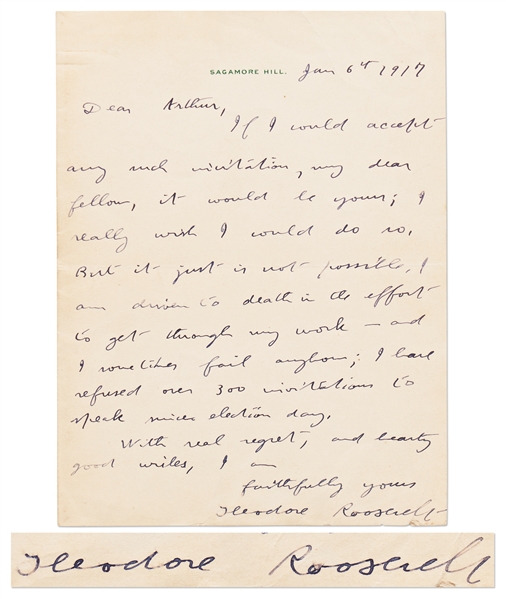 SAGAMORE HILL.
Jan 6th 1917
Dear Arthur,
If I would accept
any such invitation, my dear
fellow, it would be yours; I
really wish I could do so.
But it just is not possible. I
am driven to death in the effort
to get through my work – and
I sometimes fail anyhow; I have
refused over 300 invitations to
speak since election day.
With real regret, and hearty
good wishes, I am
faithfully yours
Theodore Roosevelt
Theodore Roosevelt